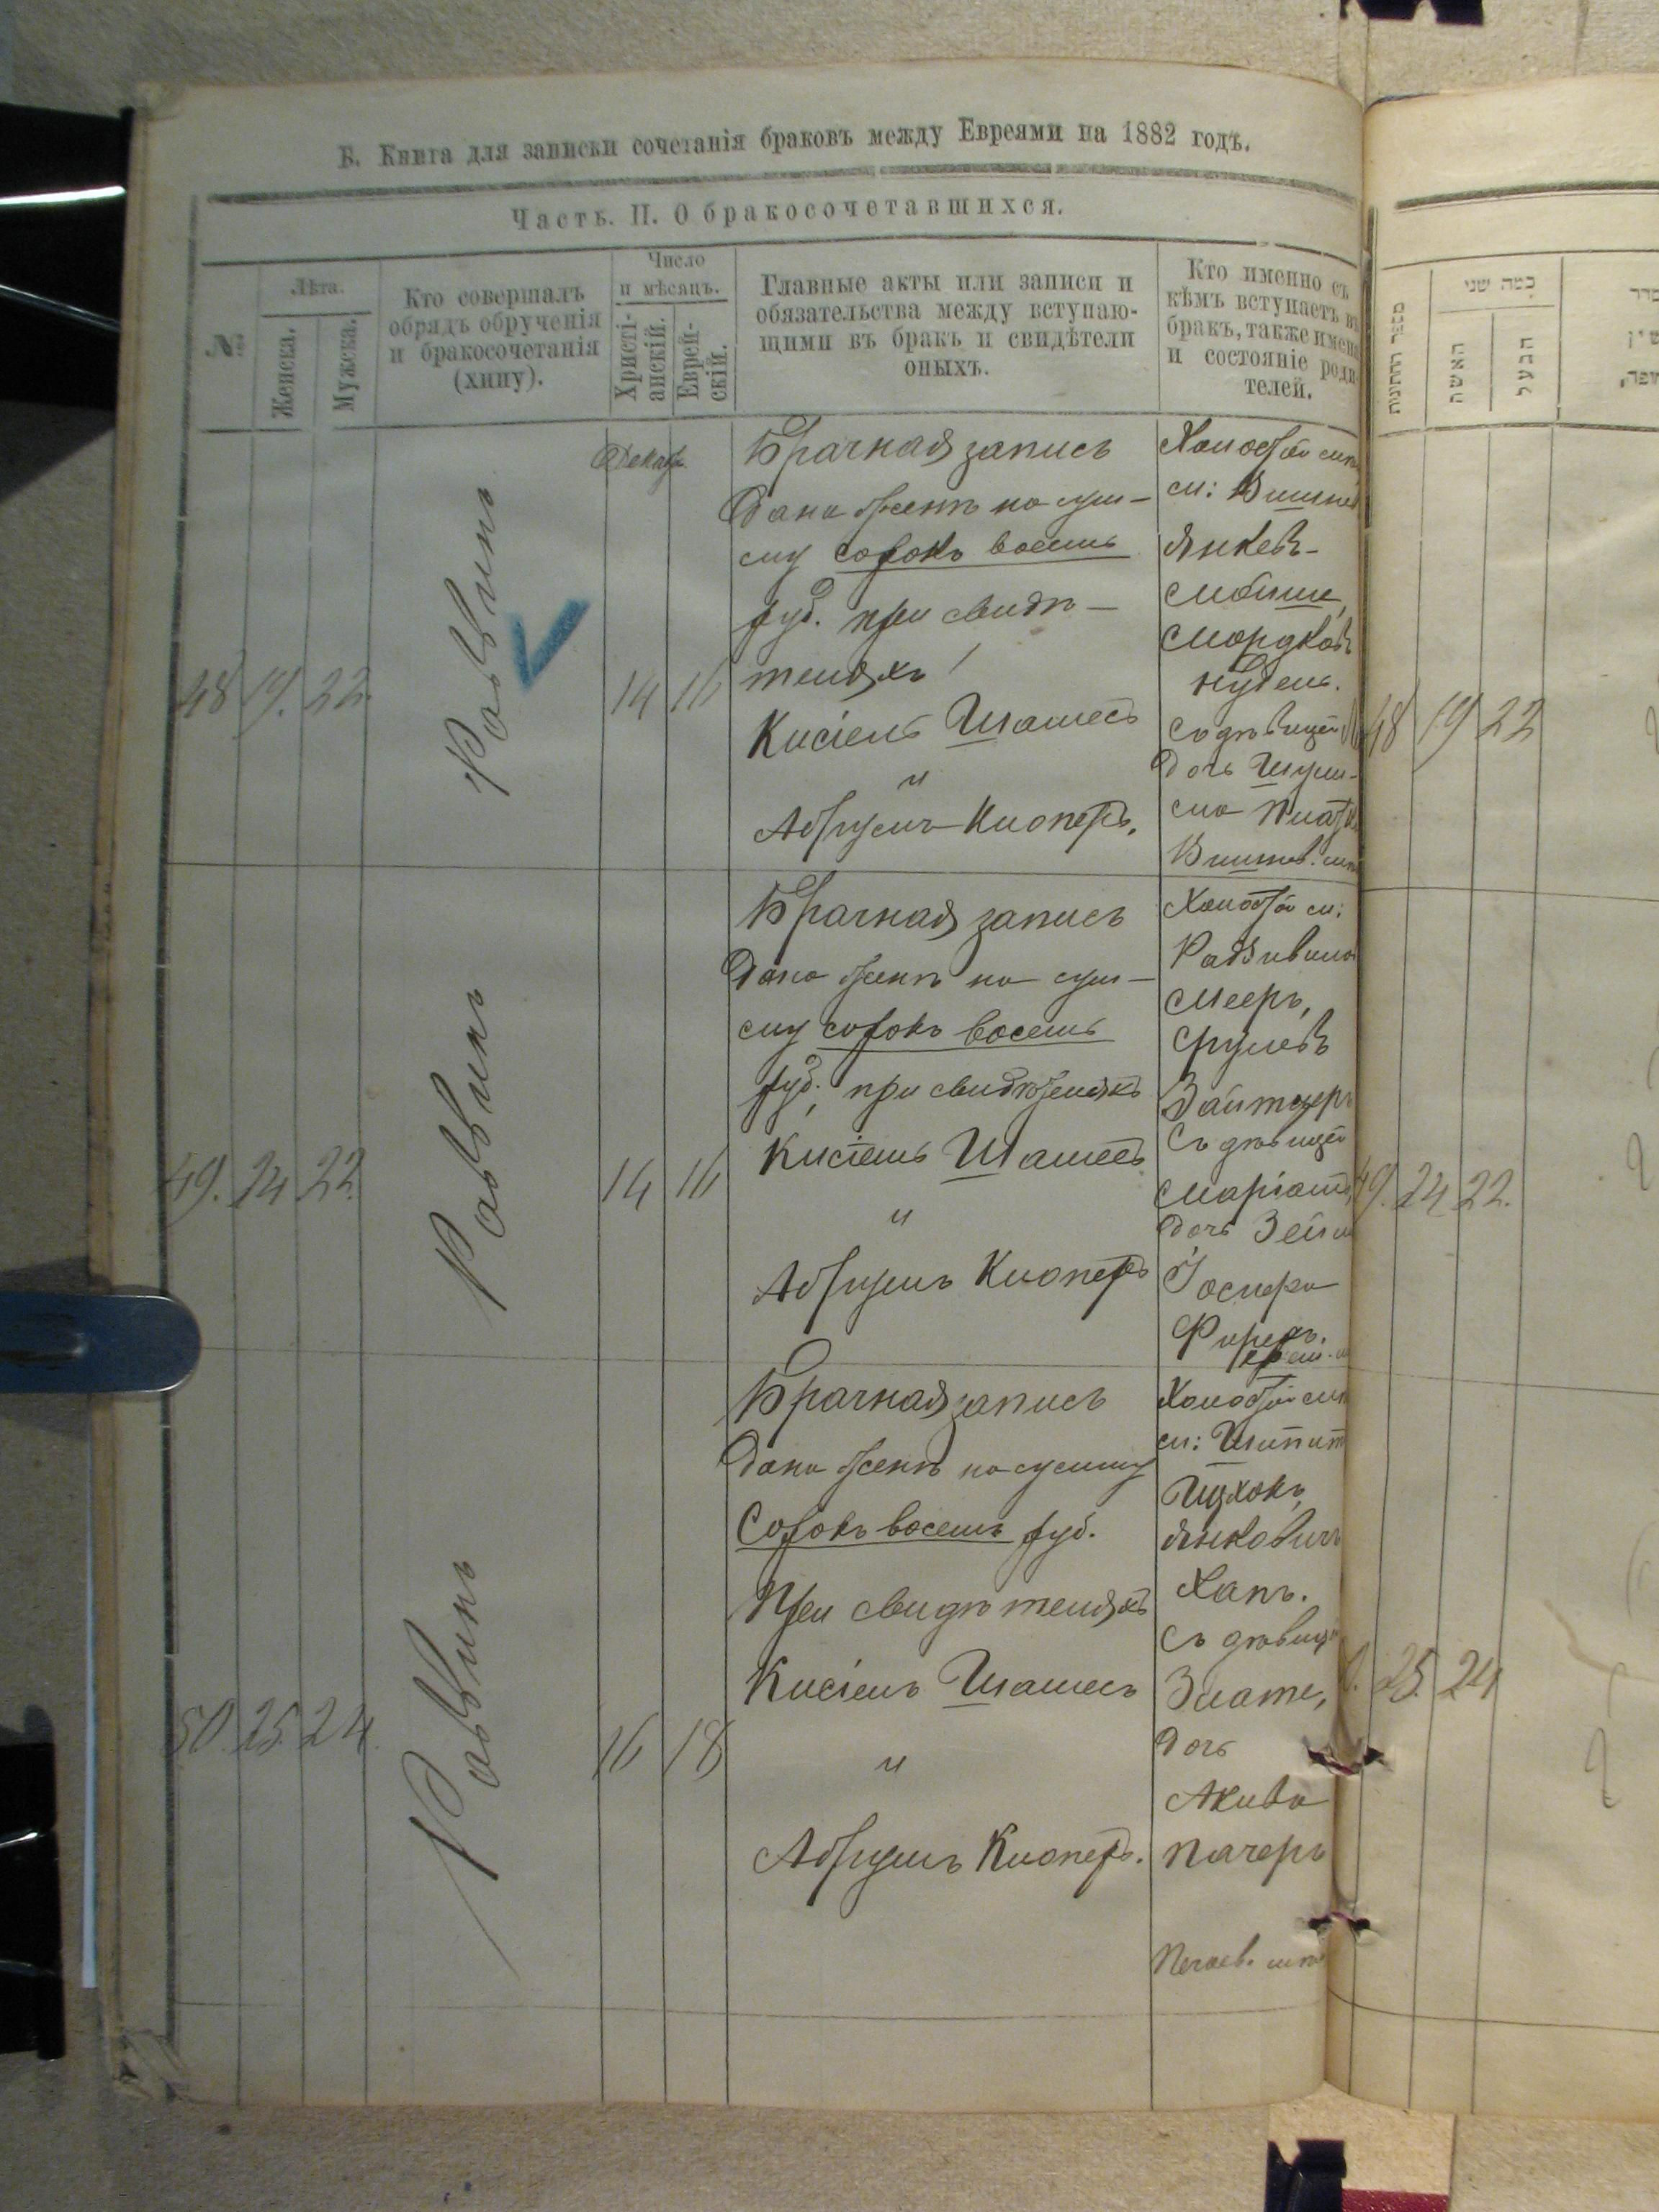 Б. Книга для записки сочетанія браковъ между Евреями на 1882 годъ.
Часть. II. О бракосочетавшихся.
№
Лѣта.
Женска.
Мужска.
Кто совершалъ
обрядъ обрученія
и бракосочетанія
(хипу).
Число
и мѣсяцъ.
Христі-
анскій.
Еврей-
скій.
Главные акты или записи и
обязательства между вступаю-
щими въ бракъ и свидѣтели
оныхъ.
Кто именно съ
кѣмъ вступаетъ въ
бракъ, также имена
и состояніе роди-
телей.
מספר החתונות
כמה שני
האשה
הבעל
48
19.
22.
Раввинъ
Декабр.
14
16
Брачная запись
дана женѣ на сум-
му сорокъ восемь
руб. при свидѣ-
теляхъ
Кисіель Шамесъ
и
Абрумъ Клоперъ.
Холостой
м: Вишнев
Янкев-
Мошко
Мордков
Нудель.
Съ дѣвицей
дочь Шум-
Вишнев.
48
19
22
49.
24
22.
Раввинъ
14
16
Брачная запись
дана женѣ на сум-
му сорокъ восемь
руб. при свидѣтеляхъ
Кисіель Шамесъ
и
Абрумъ Клоперъ
Холостой м:
Радзивило
Мееръ,
Срулевъ
Зайтщеръ
Съ дѣвицей
Маріам
дочь Зейл
Іосифа
49.
24
22.
50.
25.
24.
Раввинъ
16
18
Брачная запись
дана женѣ на сумму
Сорокъ восемь руб.
При свидѣтеляхъ
Кисіель Шамесъ
и
Абрумъ Клоперъ.
Холостой
м: Шепет
Ицхокъ
Янковичъ
Ханъ.
Съ дѣвицей
Злате,
дочь
Акива
Пачеръ
Почаев.
25.
24